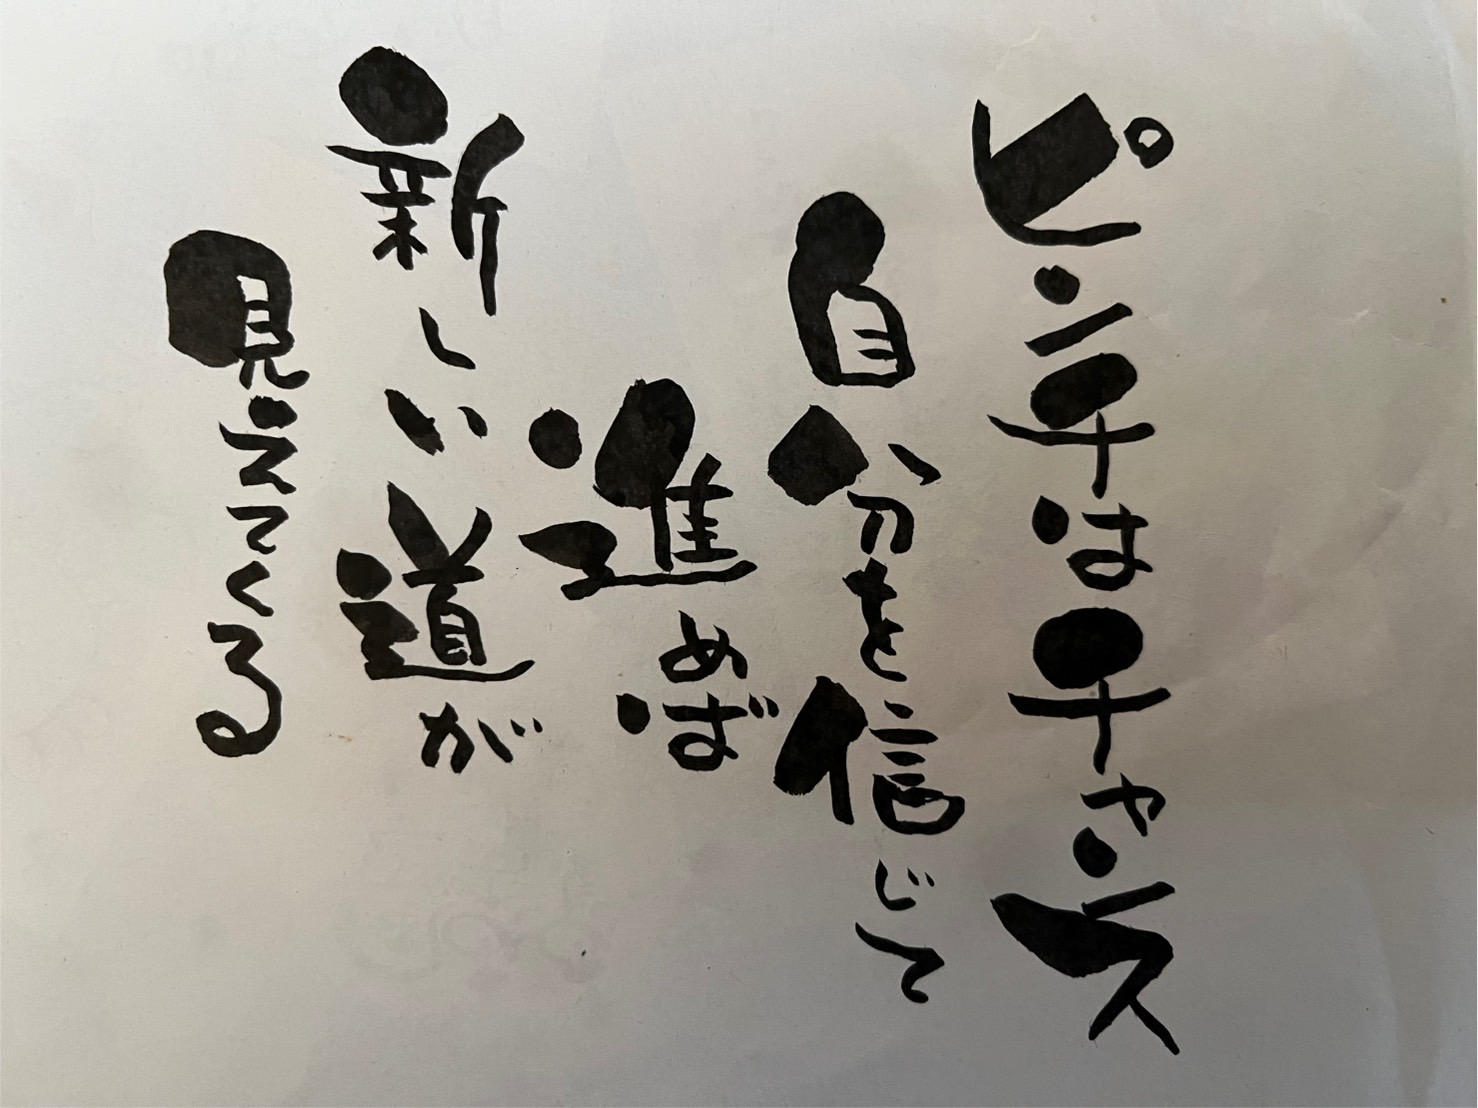 ピンチはチャンス
自分を信じて
進めば
新しい道が
見えてくる